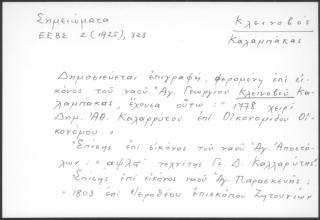 Σημειώματα
Κλεινοβός
ΕΕΒΣ 2 (1925), 323
Καλαμπάκας
Δημοσιεύεται ἐπιγραφή, φερομένη ἐπὶ εἰ-
κόνος τοῦ ναοῦ Ἁγ. Γεωργίου Κλεινοβοῦ Κα-
λαμπάκας, ἔχουσα οὕτω: "1778 χειρὶ
Δημ. Ἀθ. Καλαρρύτου ἐπὶ Οἰκονομίδου Οἰ-
κονόμου."
Ἐπίσης ἐπὶ εἰκόνος τοῦ ναοῦ Ἁγ. Ἀποστό-
λων: "αψλα΄ τεχνίτης Γε. Δ. Καλλαρύτης".
Ἐπίσης ἐπὶ εἰκόνος ναοῦ Ἁγ. Παρασκευῆς:
"1803 ἐπὶ Ἱεροθέου ἐπισκόπου Ζητουνίων